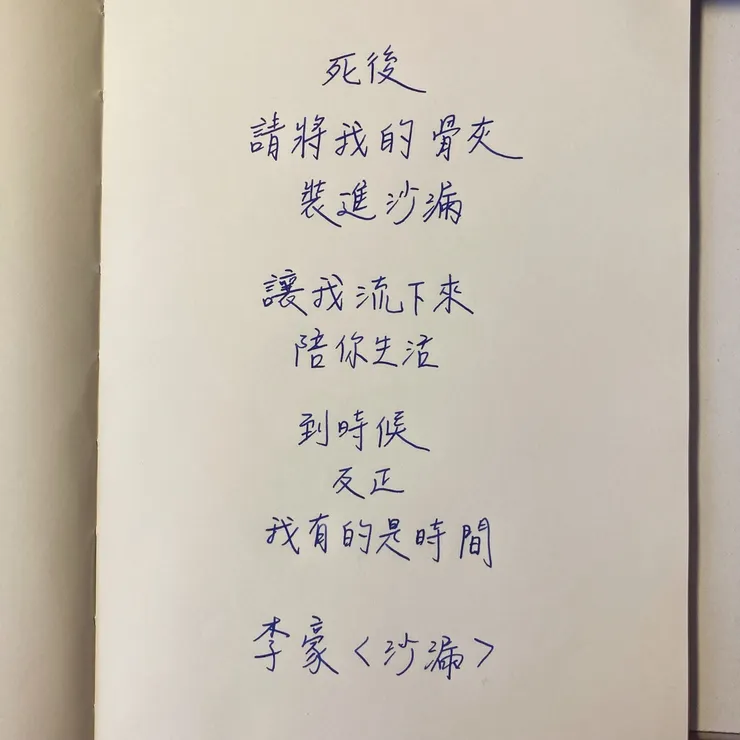 死後
請將我的骨灰
裝進沙漏
讓我流下來
陪你生活
到時候
反正
我有的是時間
李豪〈沙漏〉